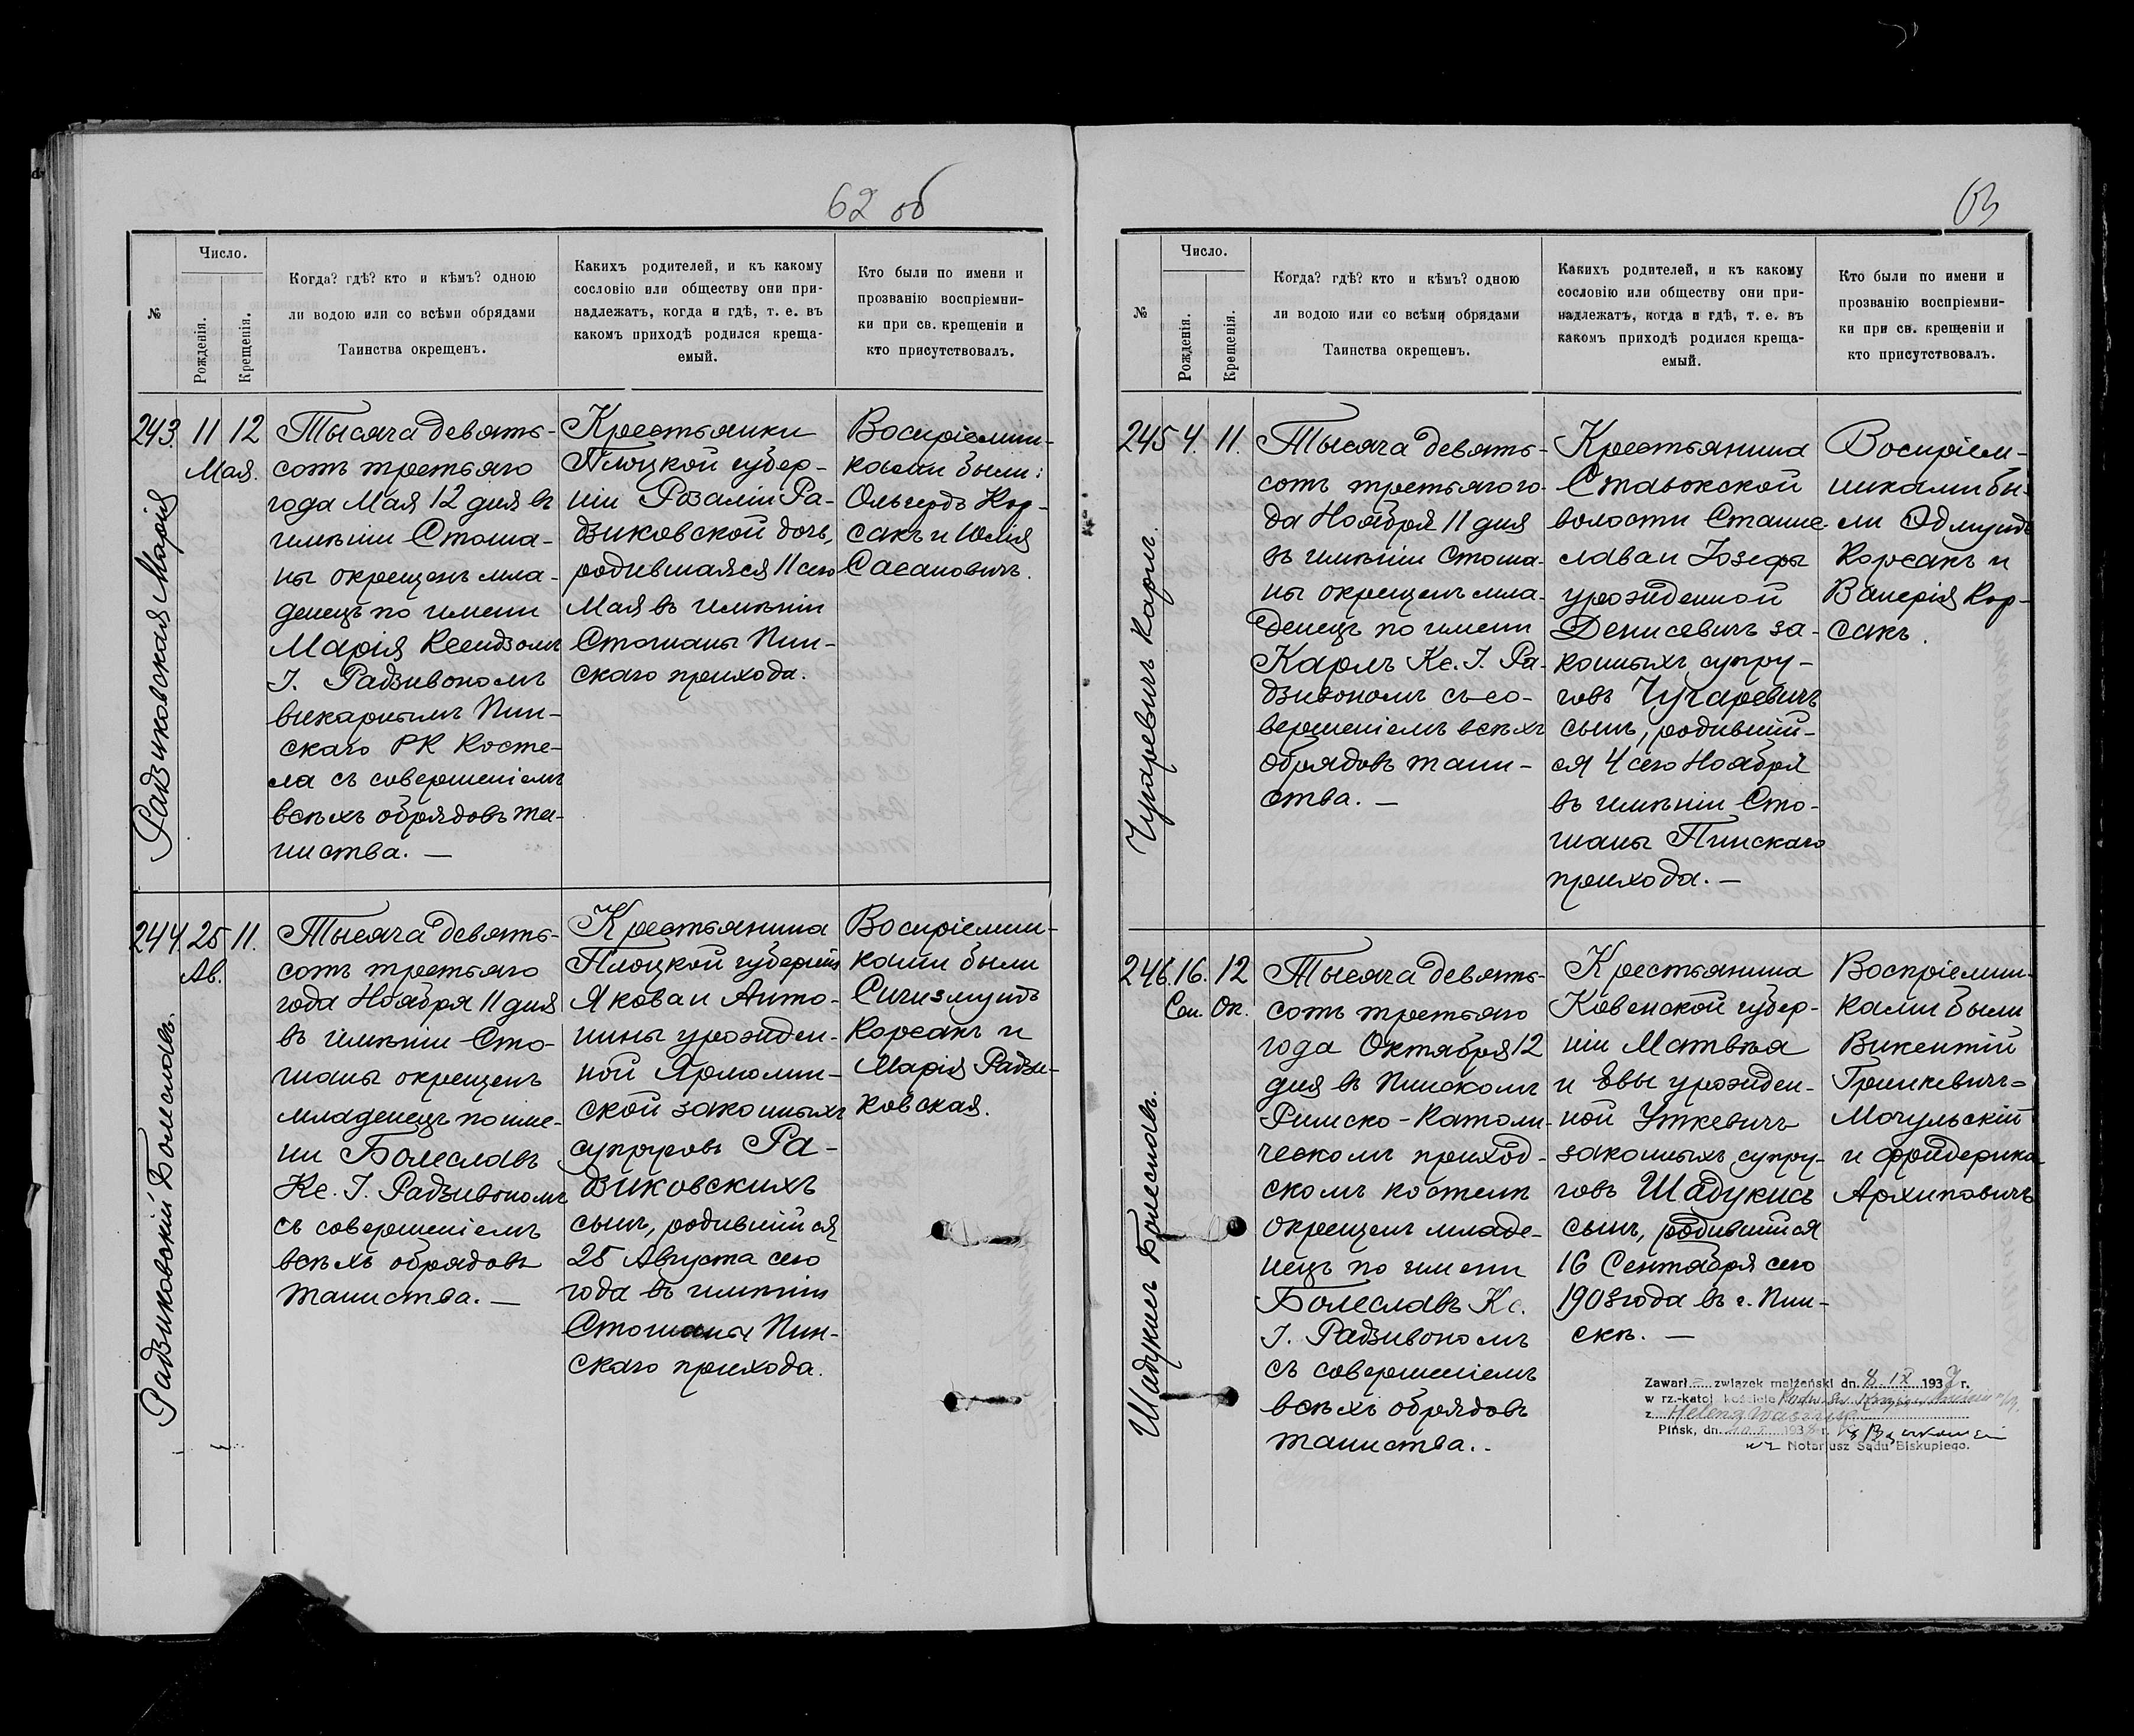 62 об
№
Число.
Рожденія.
Крещенія.
Когда? гдѣ? кто и кѣмъ? одною
ли водою или со всѣми обрядами
Таинства окрещенъ.
Какихъ родителей, и къ какому
сословію или обществу они при-
надлежатъ, когда и гдѣ, т. е. въ
какомъ приходѣ родился креща-
емый.
Кто были по имени и
прозванію воспріемни-
ки при св. крещеніи и
кто присутствовалъ.
243.
11
12
Мая.
Радзиковская Марія
Тысяча девять-
сотъ третьяго
года Мая 12 дня въ
имѣніи Стоша-
ны окрещенъ мла-
денецъ по имени
Марія Ксендзомъ
I. Радзивономъ
викарнымъ Пин-
скаго РК Косте-
ла съ совершеніемъ
всѣхъ обрядовъ та-
инства. —
Крестьянки
Плоцкой губер-
ніи Розаліи Ра-
дзиковской дочь,
родившаяся 11 сего
Мая въ имѣніи
Стошаны Пин-
скаго прихода.
Воспріемни-
ками были:
Ольгердъ Кор-
сакъ и Юлія
Сасановичъ.
244.
25
11.
Ав.
Радзиковскій Болеславъ.
Тысяча девять-
сотъ третьяго
года Ноября 11 дня
въ имѣніи Сто-
шаны окрещенъ
младенецъ по име-
ни Болеславъ
Кс. I. Радзивономъ
съ совершеніемъ
всѣхъ обрядовъ
таинства. —
Крестьянина
Плоцкой губерніи
Якова и Анто-
нины урожден-
ной Ярмолин-
ской законныхъ
супруговъ Ра-
дзиковскихъ
сынъ, родившійся
25 Августа сего
года въ имѣніи
Стошаны Пин-
скаго прихода.
Воспріемни-
ками были
Сигизмундъ
Корсакъ и
Марія Радзи-
ковская.
63
№
Число.
Рожденія.
Крещенія.
Когда? гдѣ? кто и кѣмъ? одною
ли водою или со всѣми обрядами
Таинства окрещенъ.
Какихъ родителей, и къ какому
сословію или обществу они при-
надлежатъ, когда и гдѣ, т. е. въ
какомъ приходѣ родился креща-
емый.
Кто были по имени и
прозванію воспріемни-
ки при св. крещеніи и
кто присутствовалъ.
245
4.
11.
Чугаревичъ Карлъ.
Тысяча девять-
сотъ третьяго го-
да Ноября 11 дня
въ имѣніи Стоша-
ны окрещенъ мла-
денецъ по имени
Карлъ Кс. I. Ра-
дзивономъ съ со-
вершеніемъ всѣхъ
обрядовъ таин-
ства. —
Крестьянина
Ставокской
волости Стани-
слава и Іозефы
урожденной
Денисевичъ за-
конныхъ супру-
говъ Чугаревичъ
сынъ, родившій-
ся 4 сего Ноября
въ имѣніи Сто-
шаны Пинскаго
прихода. —
Воспріем-
никами бы-
ли Эдмундъ
Корсакъ и
Валерія Кор-
сакъ.
246.
16.
12
Сен.
Ок.
Шадукисъ Болеславъ.
Тысяча девять-
сотъ третьяго
года Октября 12
дня въ Пинскомъ
Римско-Католи-
ческомъ приход-
скомъ костелѣ
окрещенъ младе-
нецъ по имени
Болеславъ Кс.
I. Радзивономъ
съ совершеніемъ
всѣхъ обрядовъ
таинства. -
Крестьянина
Ковенской губер-
ніи Матвѣя
и Евы урожден-
ной Уткевичъ
законныхъ супру-
говъ Шадукисъ
сынъ, родившійся
16 Сентября сего
1903 года въ г. Пин-
скѣ. —
Воспріемни-
ками были
Викентій
Гринкевичъ=
Мочульскій
и Фридерика
Архиповичъ
Zawarł związek małżeński dn. 8.IX 1937 r.
w rz.-katol. kościele
z Heleną
Pińsk, dn. 1938 r.
Notarjusz Sądu Biskupiego.